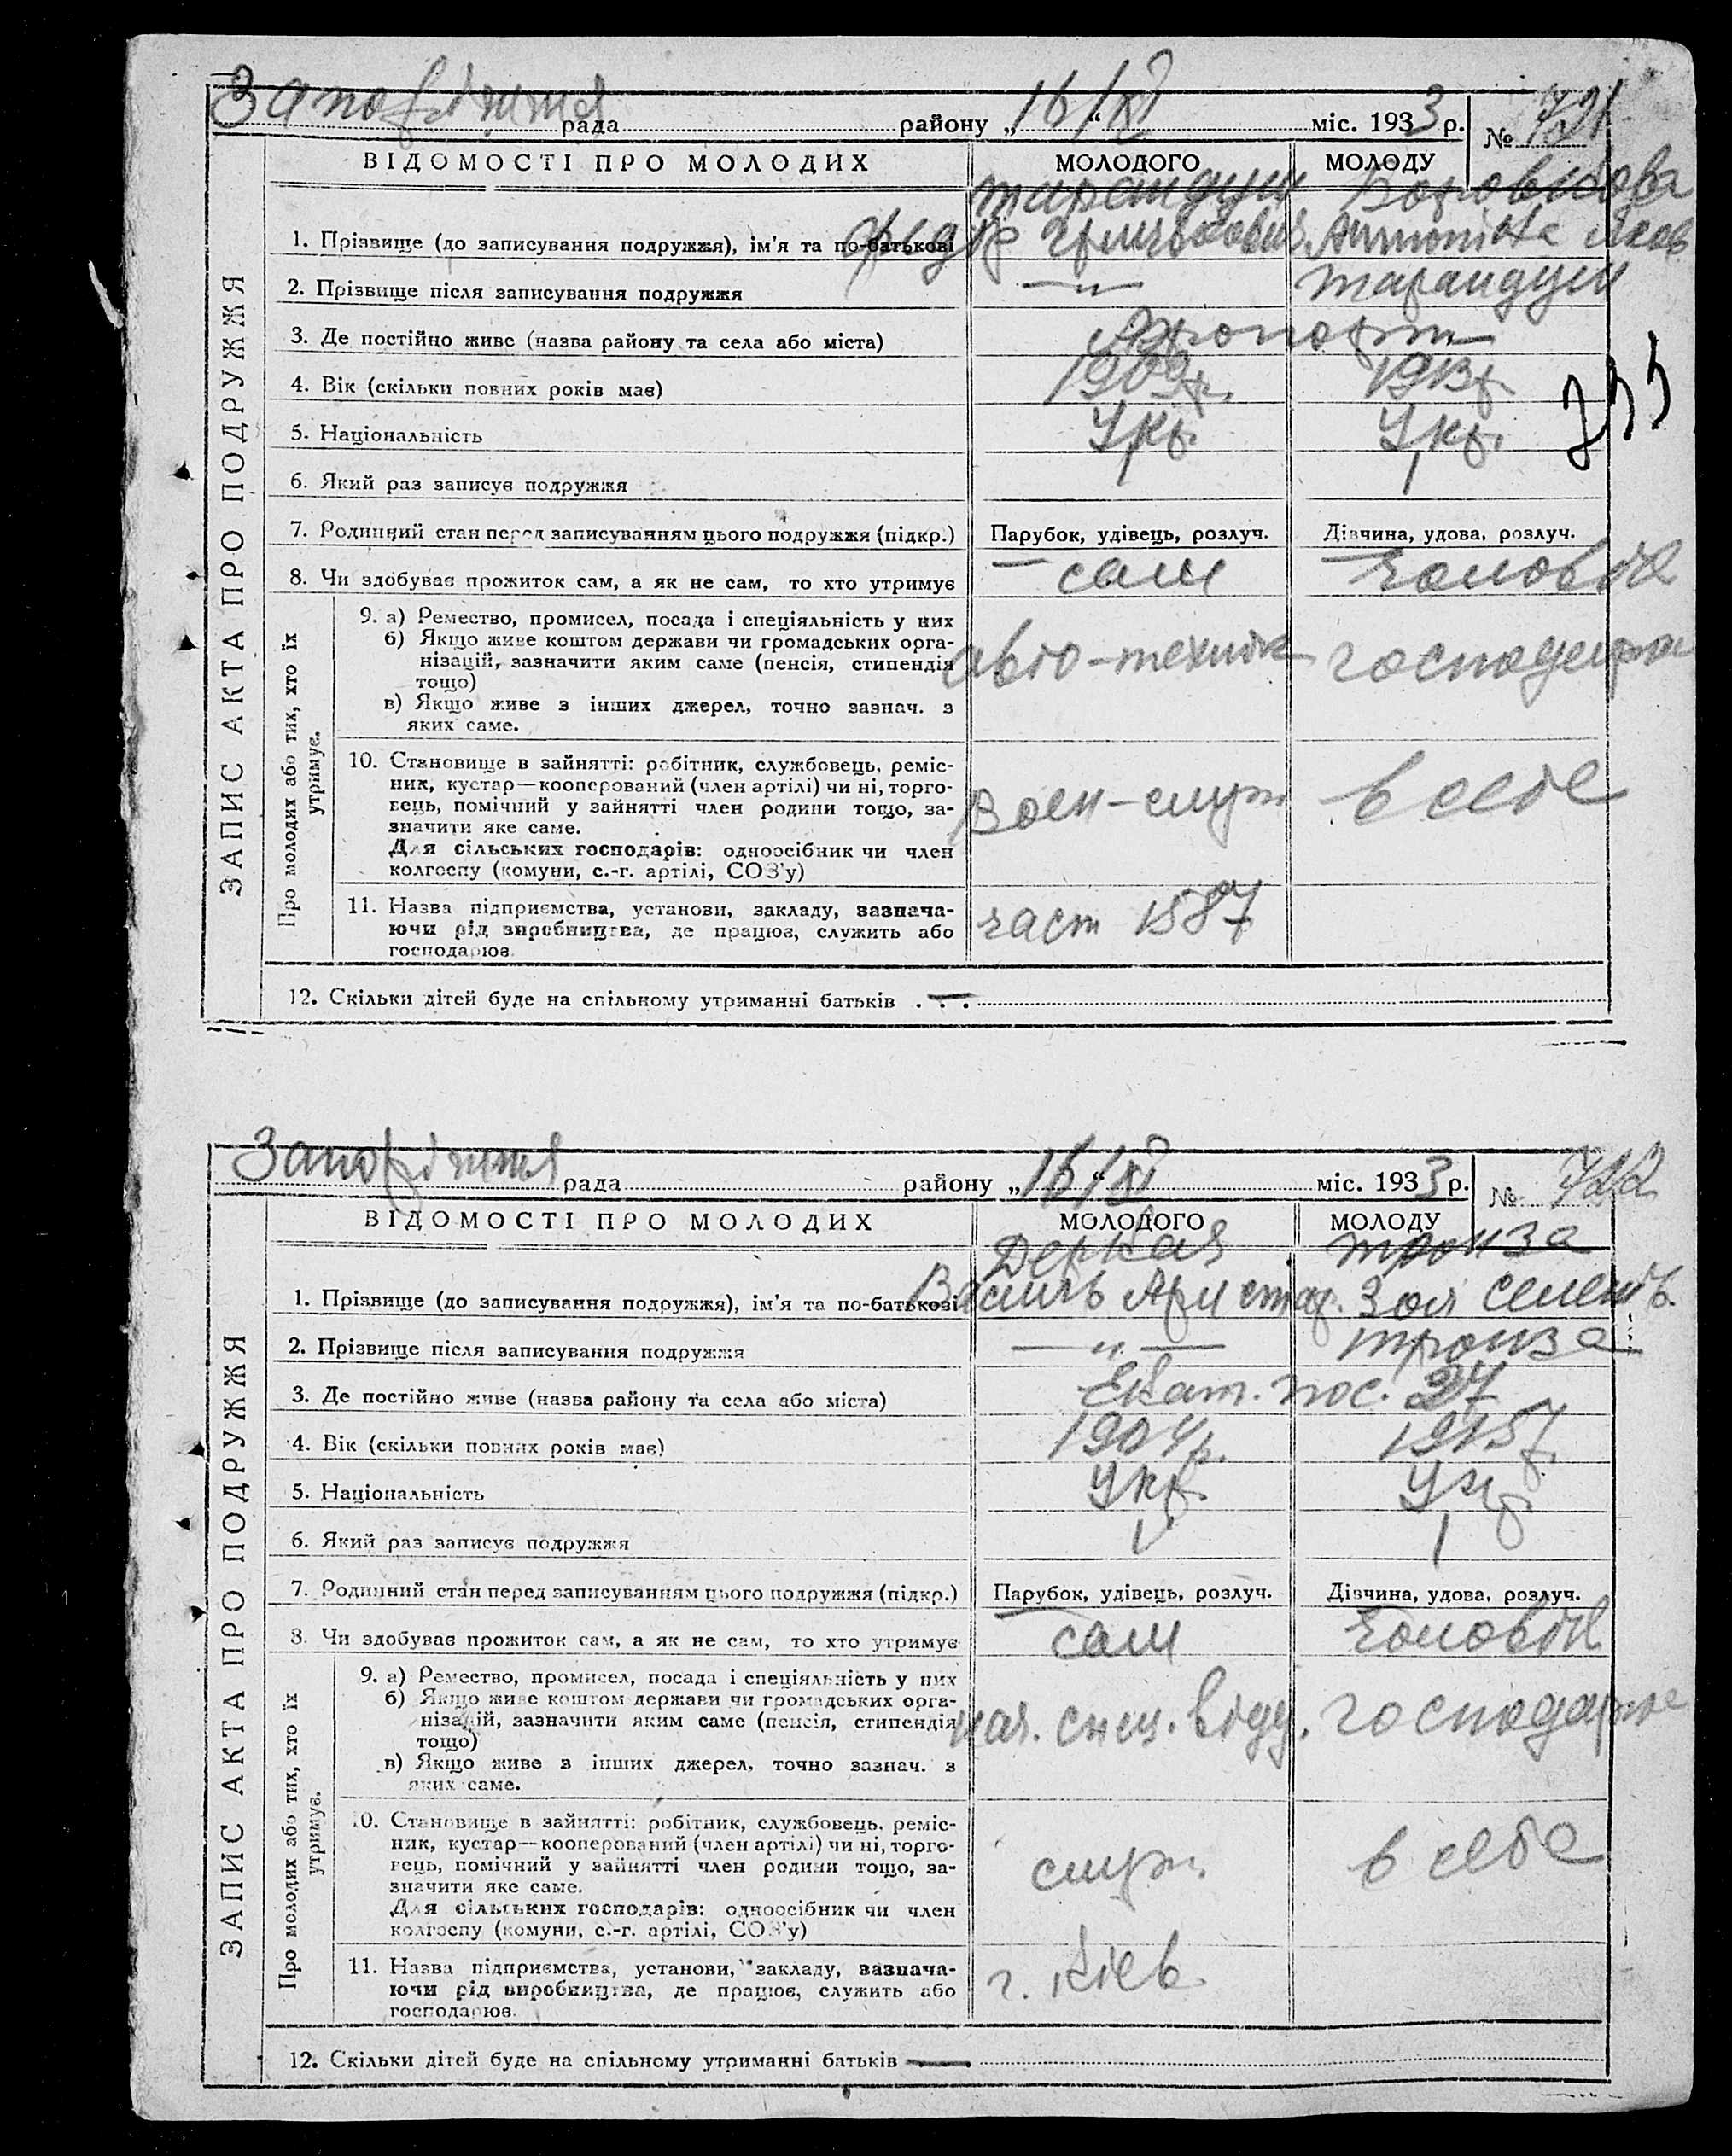 Запоріжжя рада района „16/XI“ міс. 1933 р. № 721
ВІДОМОСТІ ПРО МОЛОДИХ МОЛОДОГО МОЛОДУ
ЗАПИС АКТА ПРО ПОДРУЖЖЯ
1. Прізвище (до записування подружжя), ім'я та по-батькові
2. Прізвище після записування подружжя — „ —
3. Де постійно живе (назва району та села або міста) Аэропорт
4. Вік (скільки повних років має) 1909р. 1913р.
5. Національність Укр. Укр.
6. Який раз записує подружжя 1 1
7. Родинний стан перед записуванням цього подружжя (підкр.) Парубок, удівець, розлуч. Дівчина, удова, розлуч.
8. Чи здобуває прожиток сам, а як не сам, то хто утримує сам Чоловік
Про молодих або тих, хто їх утримує.
9. а) Ремество, промисел, посада і спеціяльність у них
б) Якщо живе коштом держави чи громадських орга-
нізацій, зазначити яким саме (пенсія, стипендія авіо-технік
тощо)
в) Якщо живе з інших джерел, точно зазнач. з
яких саме.
10. Становище в зайнятті: робітник, службовець, реміс-
ник, кустар—кооперований (член артілі) чи ні, торго-
вець, помічний у зайнятті член родини тощо, за- Воен-служ в себе
значити яке саме.
Для сільських господарів: одноосібник чи член
колгоспу (комуни, с.-г. артілі, СОЗ'у)
11. Назва підприємства, установи, закладу, зазнача-
ючи рід виробництва, де працює, служить або част 1587
господарює.
12. Скільки дітей буде на спільному утриманні батьків . —
Запоріжжя рада району „16/XI“ міс. 1933 р. № 722
ВІДОМОСТІ ПРО МОЛОДИХ МОЛОДОГО МОЛОДУ
ЗАПИС АКТА ПРО ПОДРУЖЖЯ
Деркач Троиза
1. Прізвище (до записування подружжя), ім'я та по-батькові Василь Аристар. Зоя Семенів.
2. Прізвище після записування подружжя — „ — Троиза
3. Де постійно живе (назва району та села або міста) Екат. пос. 27
4. Вік (скільки повних років має) 1904р. 1915р.
5. Національність Укр. Укр.
6. Який раз записує подружжя 1 1
7. Родинний стан перед записуванням цього подружжя (підкр.) Парубок, удівець, розлуч. Дівчина, удова, розлуч.
8. Чи здобуває прожиток сам, а як не сам, то хто утримує сам Чоловік
Про молодих або тих, хто їх утримує.
9. а) Ремество, промисел, посада і спеціяльність у них
б) Якщо живе коштом держави чи громадських орга-
нізацій, зазначити яким саме (пенсія, стипендія нач. спец. відд.
тощо)
в) Якщо живе з інших джерел, точно зазнач. з
яких саме.
10. Становище в зайнятті: робітник, службовець, реміс-
ник, кустар—кооперований (член артілі) чи ні, торго-
вець, помічний у зайнятті член родини тощо, за- служ. в себе
значити яке саме.
Для сільських господарів: одноосібник чи член
колгоспу (комуни, с.-г. артілі, СОЗ'у)
11. Назва підприємства, установи, закладу, зазнача-
ючи рід виробництва, де працює, служить або г. Кіев.
господарює.
12. Скільки дітей буде на спільному утриманні батьків —